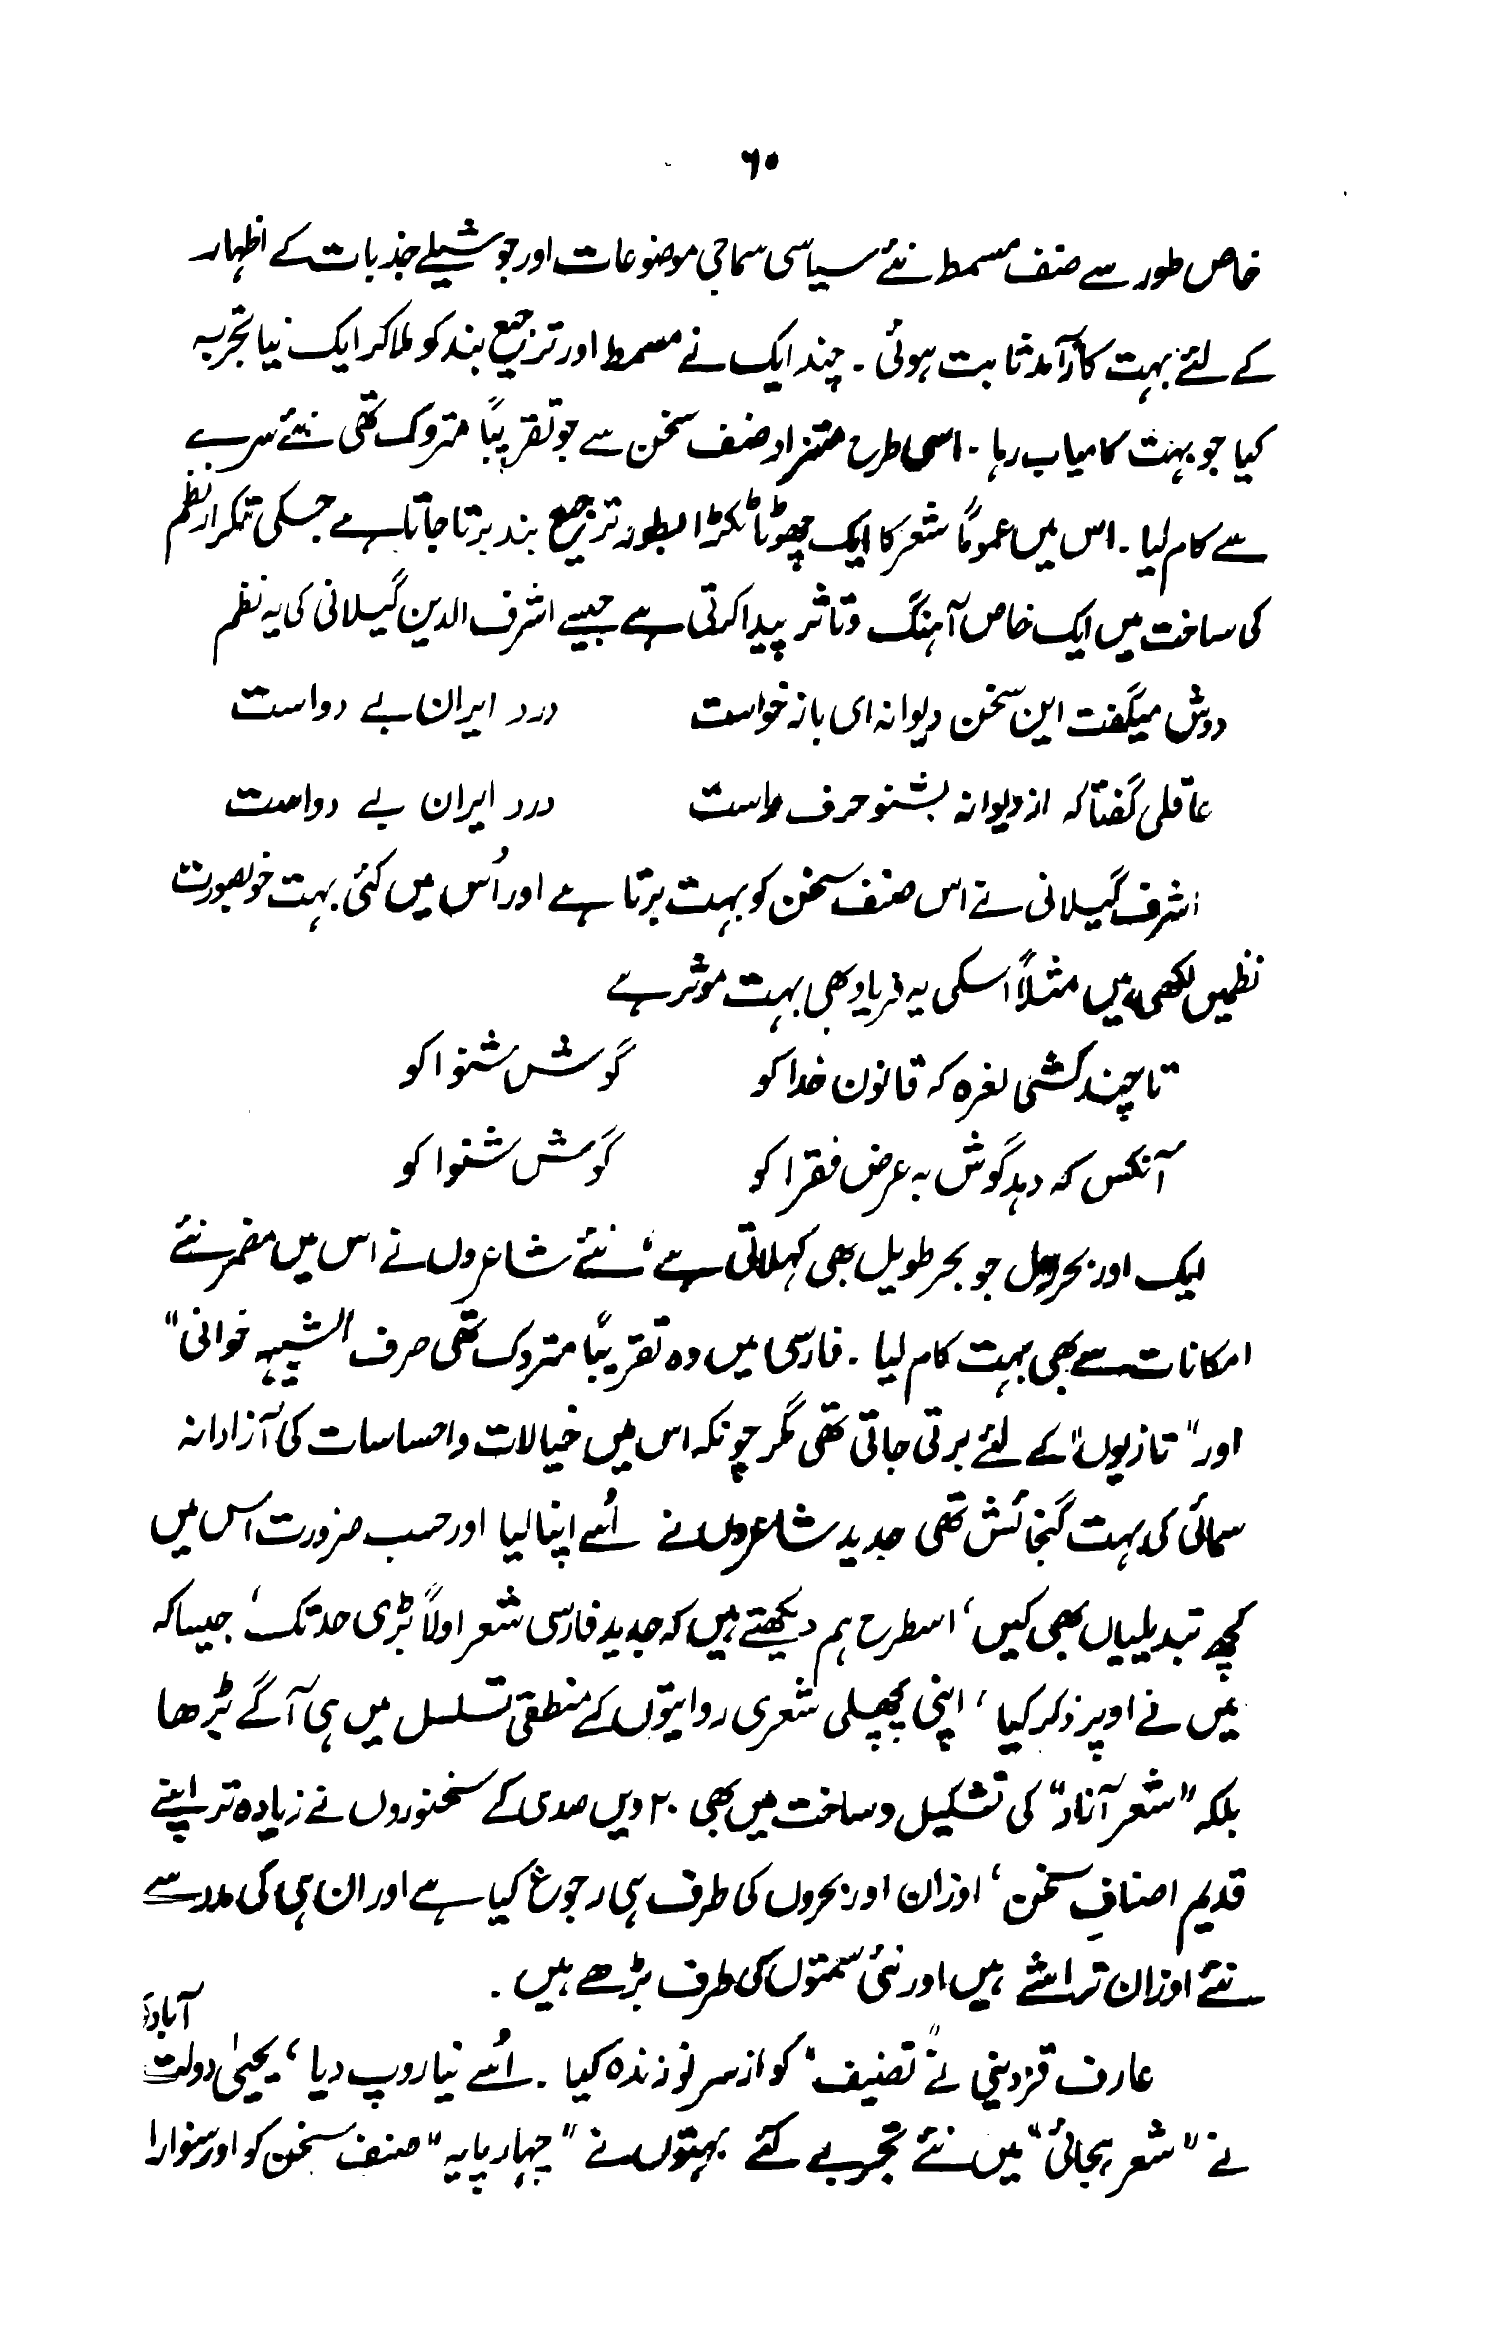 ۶۰
خاص طور سے صنف مسمط نئے سیاسی سماجی موضوعات اور جوشیلے جذبات کے اظہار
کے لئے بہت کارآمد ثابت ہوئی ۔ چند ایک نے مسمط اور ترجیع بند کو ملا کر ایک نیا تجربہ
کیا جو بہت کامیاب رہا ۔ اسی طرح متزاد صنف سخن سے جو تقریباً متروک تھی نئے سرے
سے کام لیا ۔ اس میں عموماً شعر کا ایک چھوٹا ٹکڑا بطور ترجیع بند برتا جاتا ہے جسکی تکرار نظم
کی ساخت میں ایک خاص آہنگ و تاثر پیدا کرتی ہے جیسے اشرف الدین گیلانی کی یہ نظم
دوش میگفت این سخن دیوانہ ای باز خواست درد ایران بے دواست
عاقلی گفتا کہ از دیوانہ بشنو حرف راست درد ایران بے دواست
اشرف گیلانی نے اس صنف سخن کو بہت برتا ہے اور اُس میں کئی بہت خوبصورت
نظمیں لکھی ہیں مثلاً اسکی یہ فریاد بھی بہت موثر ہے
تا چند کشی نعرہ کہ قانون خدا کو گوش شنوا کو
آنکس کہ دہد گوش بہ عرض فقرا کو گوش شنوا کو
ایک اور بحر رمل جو بحر طویل بھی کہلاتی ہے ، نئے شاعروں نے اس میں مضمر نئے
امکانات سے بھی بہت کام لیا ۔ فارسی میں وہ تقریباً متروک تھی صرف "شبیہہ خوانی"
اور "تازیوں" کے لئے برتی جاتی تھی مگر چونکہ اس میں خیالات و احساسات کی آزادانہ
سمائی کی بہت گنجائش تھی جدید شاعروں نے اُسے اپنا لیا اور حسب ضرورت اس میں
کچھ تبدیلیاں بھی کیں ، اسطرح ہم دیکھتے ہیں کہ جدید فارسی شعر اولاً بڑی حد تک ، جیسا کہ
میں نے اوپر ذکر کیا ، اپنی پچھلی شعری روایتوں کے منطقی تسلسل میں ہی آگے بڑھا
بلکہ "شعر آزاد" کی تشکیل و ساخت میں بھی ۲۰ ویں صدی کے سخنوروں نے زیادہ تر اپنے
قدیم اصنافِ سخن ، اوزان اور بحروں کی طرف ہی رجوع کیا ہے اور ان ہی کی مدد سے
نئے اوزان تراشے ہیں اور نئی سمتوں کی طرف بڑھے ہیں ۔
عارف قزوینی نے "تصنیف" کو از سر نو زندہ کیا ۔ اُسے نیا روپ دیا ، یحییٰ دولت آبادی
نے "شعر ہجائی" میں نئے تجربے کئے بہتوں نے "چہار پایہ" صنف سخن کو اور سنوارا